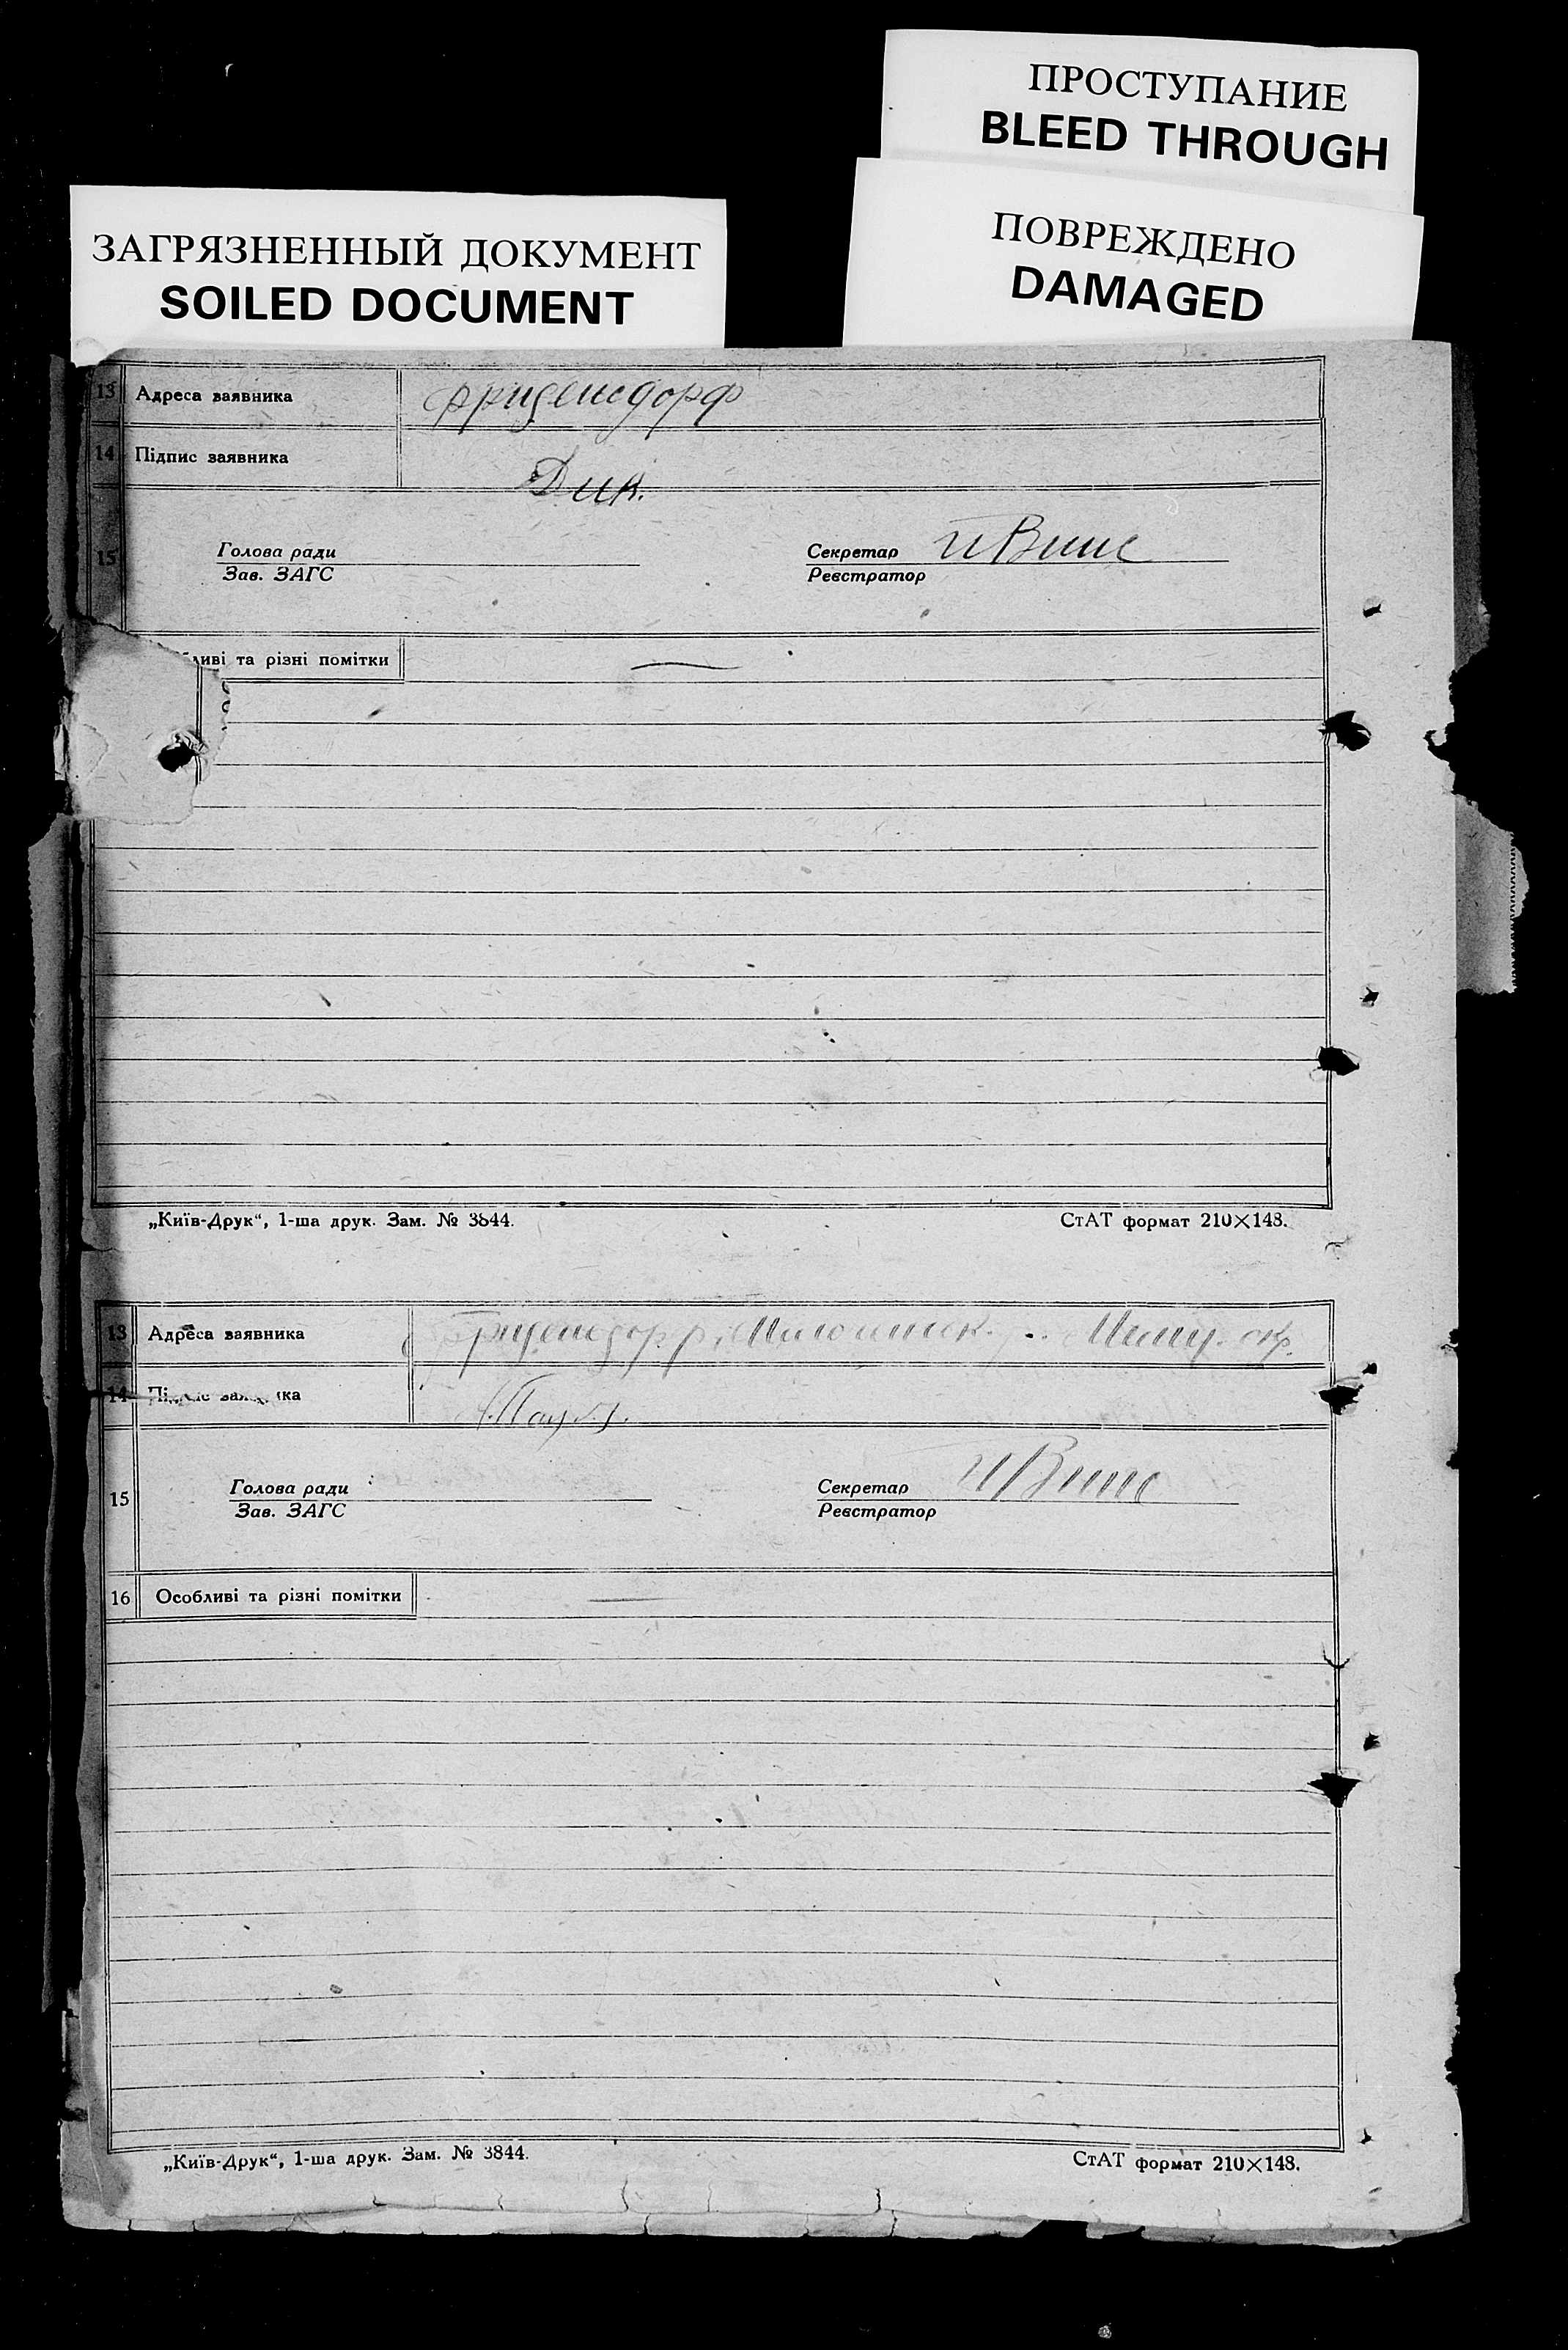 ПРОСТУПАНИЕ
BLEED THROUGH
ПОВРЕЖДЕНО
DAMAGED
ЗАГРЯЗНЕННЫЙ ДОКУМЕНТ
SOILED DOCUMENT
13 Адреса заявника Фриденсдорф
14 Підпис заявника Дик.
15 Голова ради Секретар иВинс
Зав. ЗАГС Реєстратор
та різні помітки
„Київ-Друк“, 1-ша друк. Зам. № 3844. СтАТ формат 210×148.
13 Адреса заявника окр.
14
15 Голова ради Секретар иВинс
Зав. ЗАГС Реєстратор
16 Особливі та різні помітки
„Київ-Друк“, 1-ша друк. Зам. № 3844. СтАТ формат 210×148.